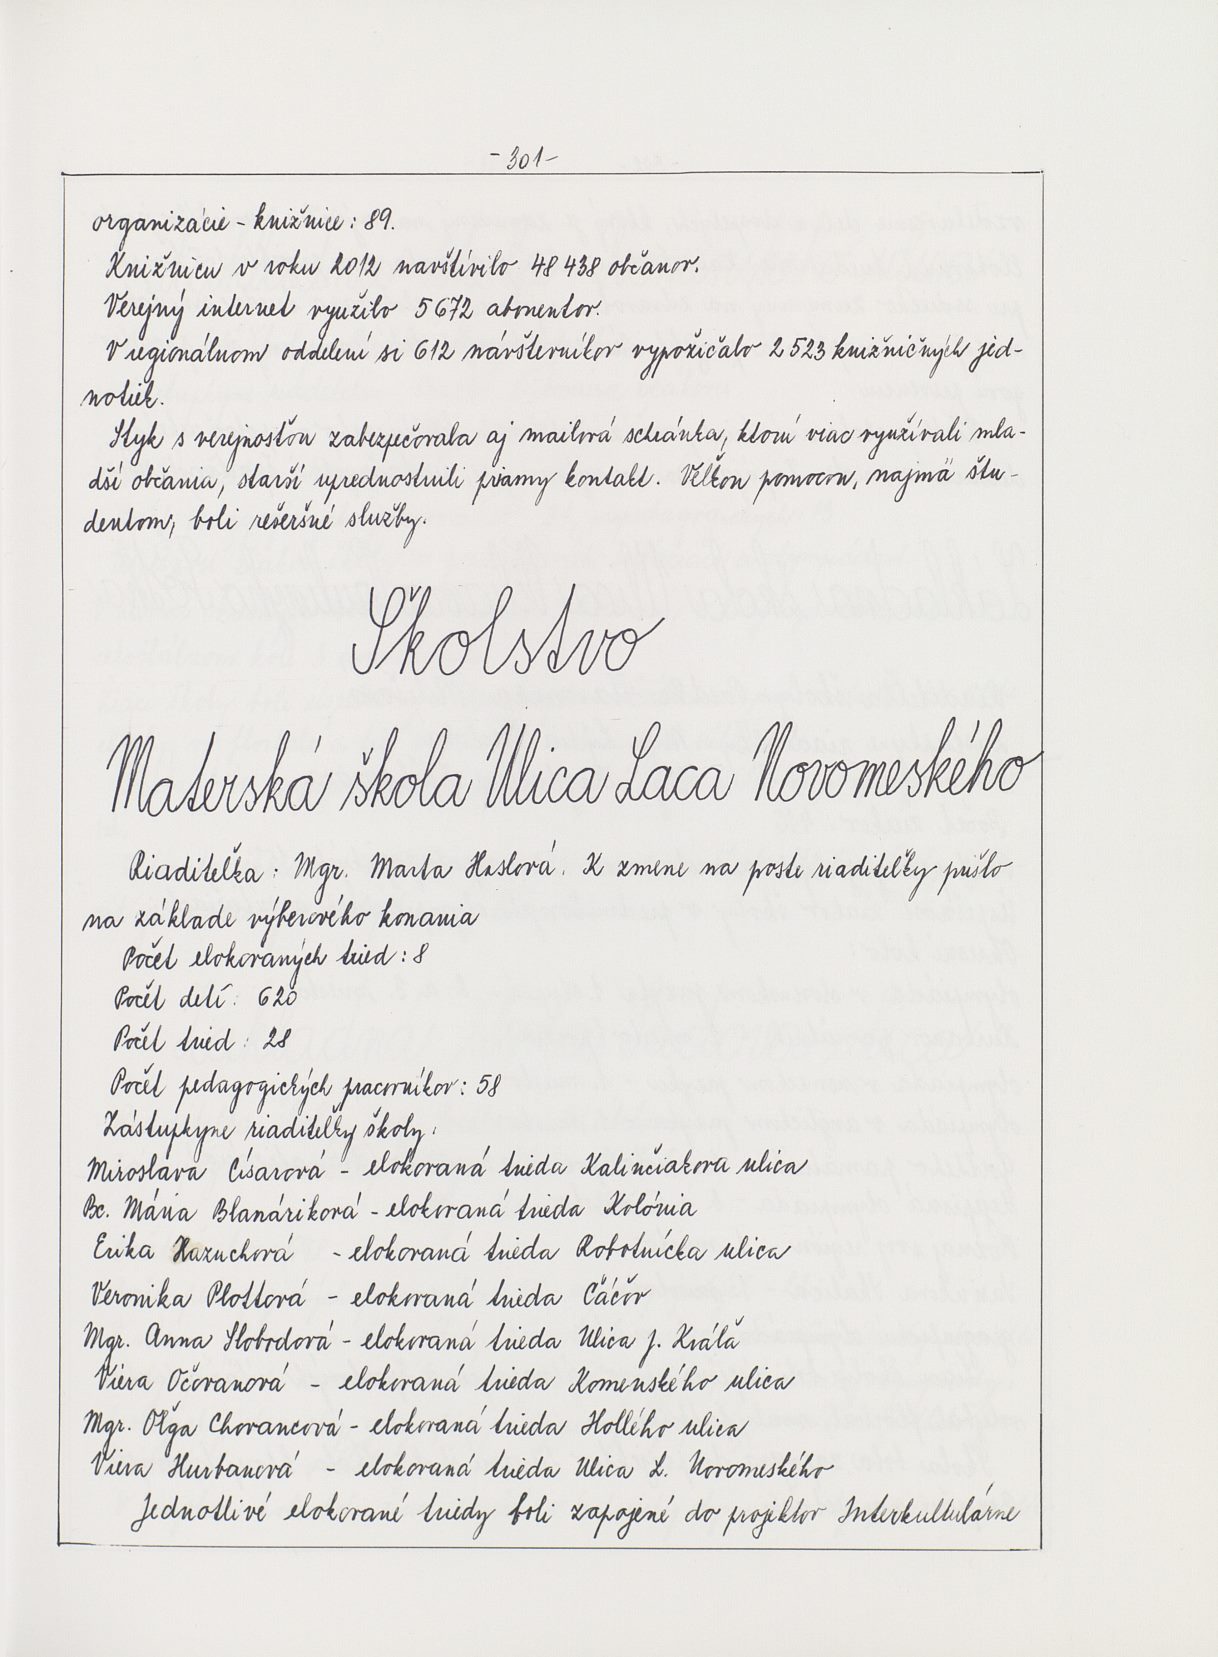 -301-
organizácie - knižnice: 89.
Knižnicu v roku 2012 navštívilo 48 438 občanov.
Verejný internet využilo 5 672 abonentov.
V regionálnom oddelení si 612 návštevníkov vypožičalo 2 523 knižničných jed-
notiek.
Styk s verejnosťou zabezpečovala aj mailová schránka, ktorú viac využívali mla-
dší občania, starší uprednostnili priamy kontakt. Veľkou pomocou, najmä štu-
dentom, boli rešeršné služby.
Školstvo
Materská škola Ulica Laca Novomeského
Riaditeľka: Mgr. Marta Haslová. K zmene na poste riaditeľky prišlo
na základe výberového konania
Počet elokovaných tried: 8
Počet detí: 620
Počet tried: 28
Počet pedagogických pracovníkov: 58
Zástupkyne riaditeľky školy:
Miroslava Císarová - elokovaná trieda Kalinčiakova ulica
Bc. Mária Blanáriková - elokovaná trieda Kolónia
Erika Hazuchová - elokovaná trieda Robotnícka ulica
Veronika Plottová - elokovaná trieda Čáčov
Mgr. Anna Slobodová - elokovaná trieda Ulica J. Kráľa
Viera Očovanová - elokovaná trieda Komenského ulica
Mgr. Oľga Chovancová - elokovaná trieda Hollého ulica
Viera Hurbanová - elokovaná trieda Ulica L. Novomeského
Jednotlivé elokované triedy boli zapojené do projektov Interkultulárne